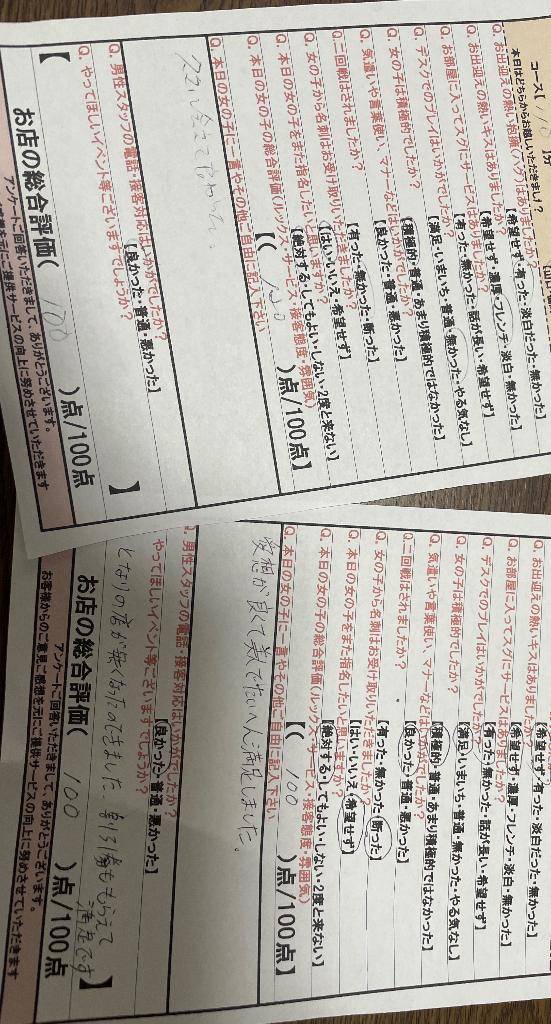 コース【110】分
本日はどちらからお越しいただきまし?
Q. お出迎えの熱い抱擁(ハグ)はありましたか?
【希望せず・有った・淡白だった・無かった】
Q. お出迎えの熱いキスはありましたか?
【希望せず・濃厚・フレンチ・淡白・無かった】
Q. お部屋に入ってスグにサービスはありましたか?
【有った・無かった・話が長い・希望せず】
Q. デスクでのプレイはいかがでしたか?
【満足・いまいち・普通・無かった・やる気なし】
Q. 女の子は積極的でしたか?
【積極的・普通・あまり積極的ではなかった】
Q. 気遣いや言葉使い、マナーなどはいかがでしたか?
【良かった・普通・悪かった】
Q. 二回戦はされましたか?
【有った・無かった・断った】
Q. 女の子から名刺はお受け取りいただきましたか?
【はい・いいえ・希望せず】
Q. 本日の女の子をまた指名したいと思いますか?
【絶対する・してもよい・しない・2度と来ない】
Q. 本日の女の子の総合評価(ルックス・サービス・接客態度・雰囲気)
【( )点/100点】
Q. 本日の女の子に一言やその他ご自由に記入下さい
Q. 男性スタッフの電話・接客対応はいかがでしたか?
【良かった・普通・悪かった】
Q. やってほしいイベント等ございますでしょうか?
【 】
お店の総合評価( 100 )点/100点
アンケートに回答いただきまして、ありがとうございます。
ご提供サービスの向上に努めさせていただきます
Q. お出迎えの熱いキスはありましたか?
【希望せず・有った・淡白だった・無かった】
Q. お部屋に入ってスグにサービスはありましたか?
【希望せず・濃厚・フレンチ・淡白・無かった】
Q. デスクでのプレイはいかがでしたか?
【有った・無かった・話が長い・希望せず】
Q. 女の子は積極的でしたか?
【満足・いまいち・普通・無かった・やる気なし】
Q. 気遣いや言葉使い、マナーなどはいかがでしたか?
【積極的・普通・あまり積極的ではなかった】
Q. 二回戦はされましたか?
【良かった・普通・悪かった】
Q. 女の子から名刺はお受け取りいただきましたか?
【有った・無かった・断った】
Q. 本日の女の子をまた指名したいと思いますか?
【はい・いいえ・希望せず】
Q. 本日の女の子の総合評価(ルックス・サービス・接客態度・雰囲気)
【絶対する・してもよい・しない・2度と来ない】
【( 100 )点/100点】
Q. 本日の女の子に一言やその他ご自由に記入下さい
愛想が良くて美人で満足しました。
Q. 男性スタッフの電話・接客対応はいかがでしたか?
【良かった・普通・悪かった】
やってほしいイベント等ございますでしょうか?
となりの店が無くなったのできました 割引券ももらえて
満足です】
お店の総合評価( 100 )点/100点
アンケートに回答いただきまして、ありがとうございます。
お客様からのご意見ご感想を元にご提供サービスの向上に努めさせていただきます